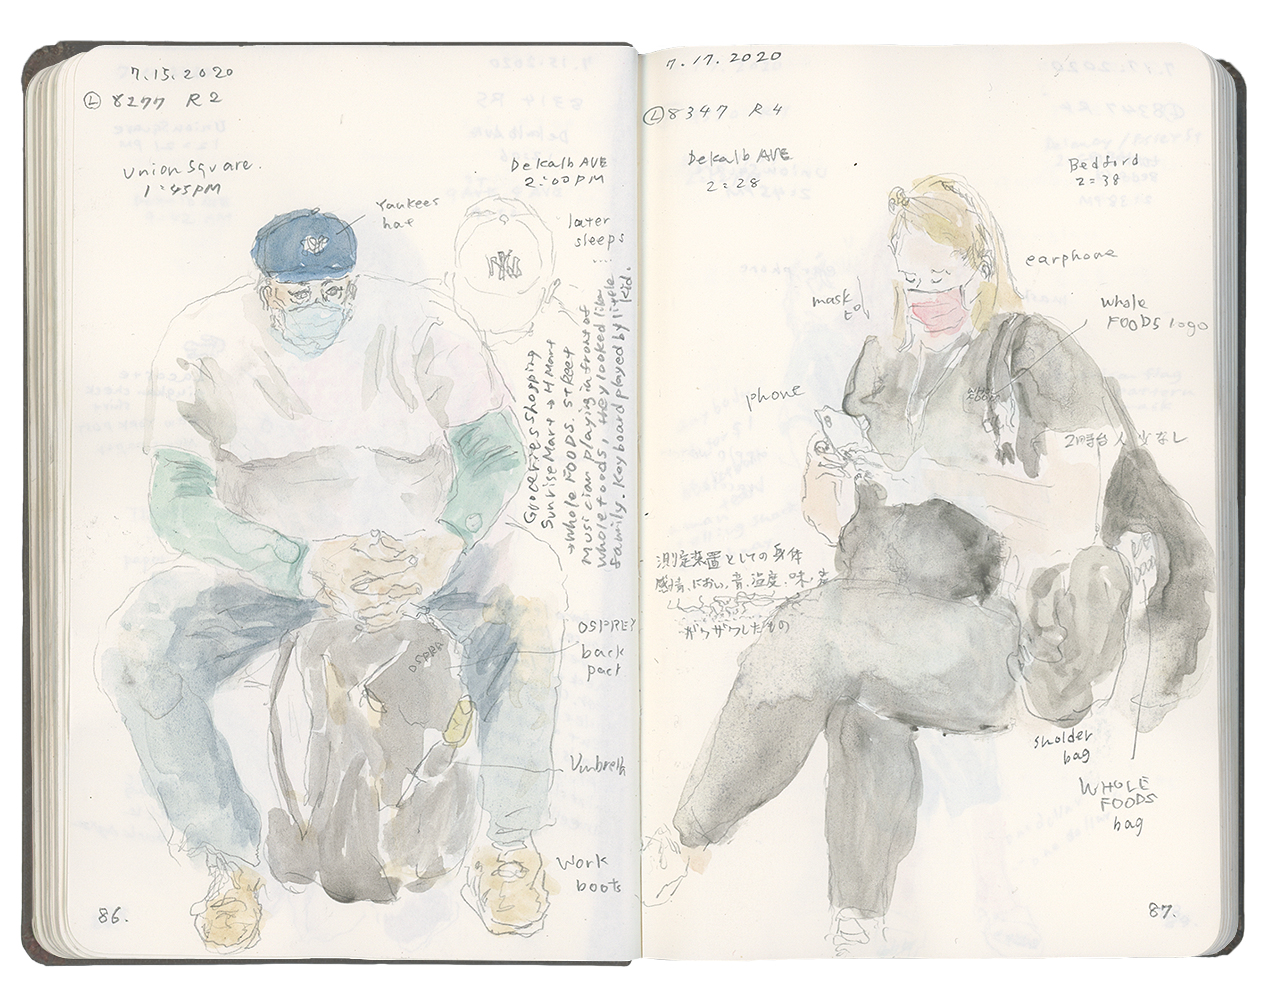 7.15.2020
Ⓛ 8277 R2
Union Square.
1:45PM
DeKalb AVE
2:00PM
Yankees
hat
NY
later
sleeps
....
Groceries Shopping
Sunrise Mart → H Mart
→ Whole FOODS. STREET
Musician Playing in front of
whole foods, they looked like
family. Keyboard played by little
kid.
OSPREY
OSPREY
back
pact
Umbrella
Work
boots
86.
7.17.2020
Ⓛ 8347 R4
DeKalb AVE
2:28
Bedford
2:38
earphone
mask
Whole
FOODS logo
WHOLE
FOODS
phone
2時台人少なし
測定装置としての身体
感情、におい、音、温度、味、光
がウザウしたもの
sholder
bag
WHOLE
FOODS
bag
87.